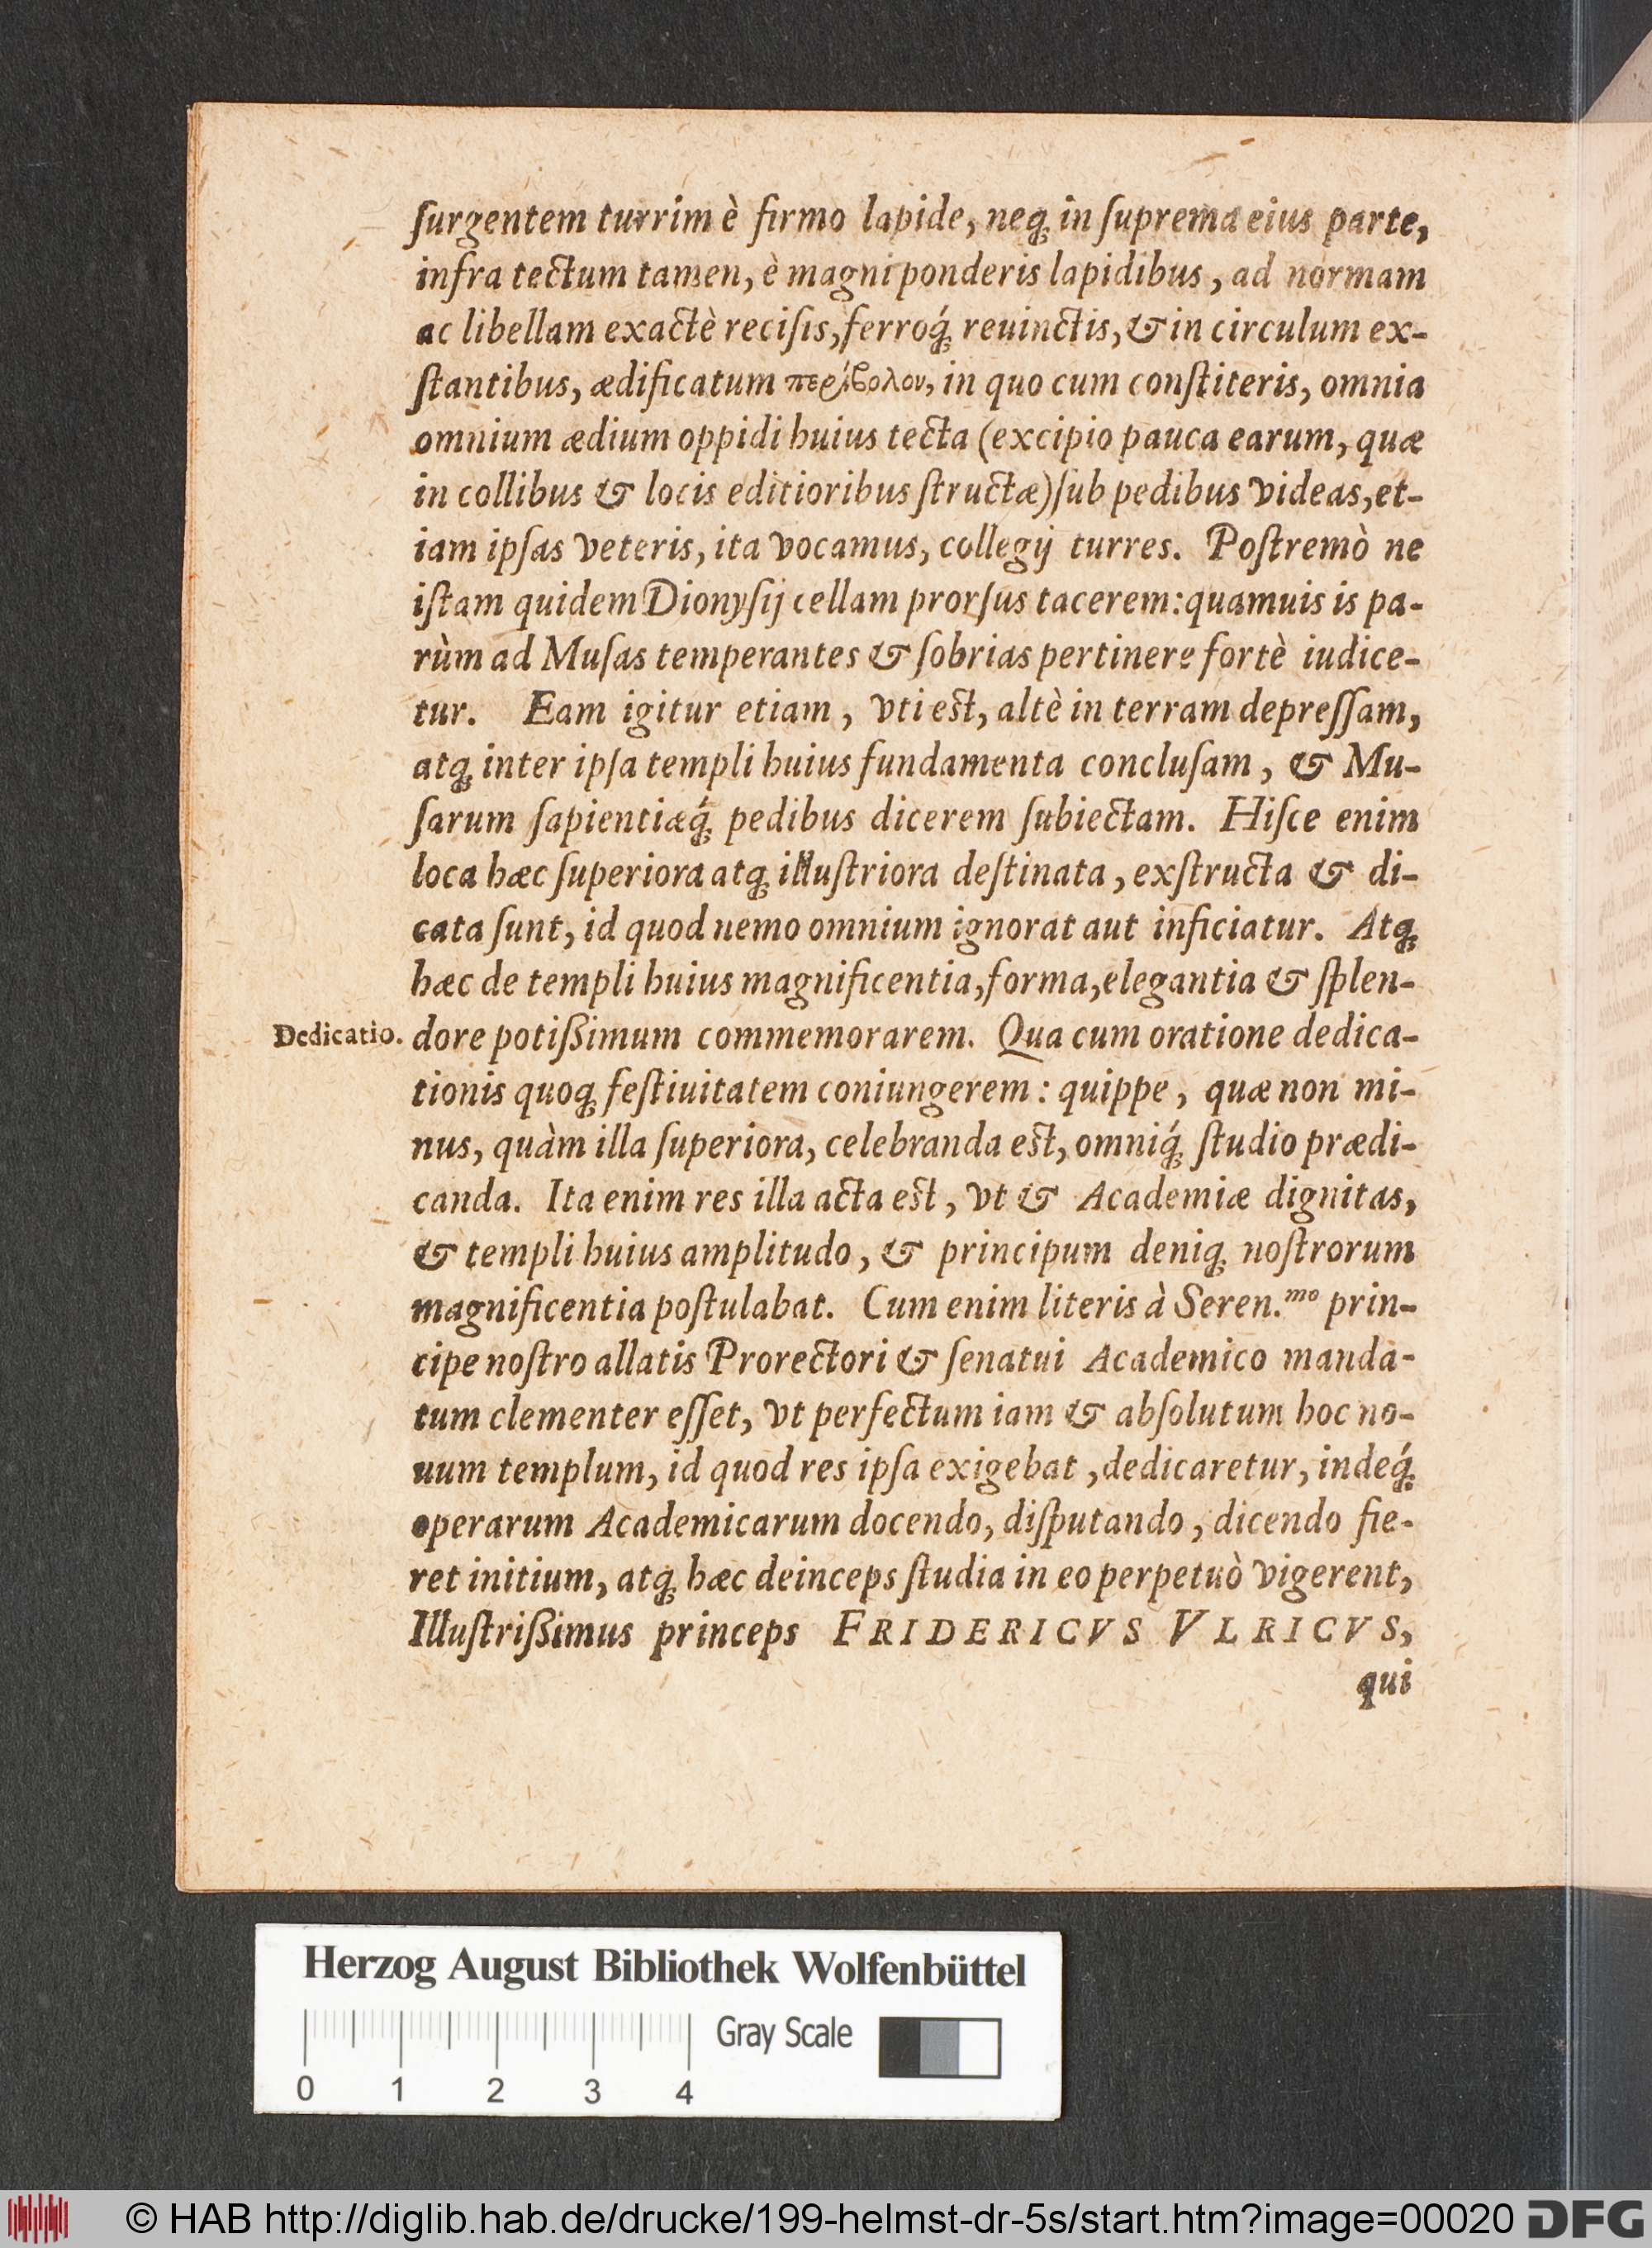 ſurgentem turrim è firmo lapide, neq́; in ſuprema eius parte,
infra tectum tamen, è magni ponderis lapidibus, ad normam
ac libellam exactè reciſis, ferroq́; reuinctis, & in circulum ex-
ſtantibus, ædificatum περίβολον, in quo cum conſtiteris, omnia
omnium ædium oppidi huius tecta (excipio pauca earum, quæ
in collibus & locis editioribus ſtructæ) ſub pedibus videas, et-
iam ipſas veteris, ita vocamus, collegij turres. Poſtremò ne
iſtam quidem Dionyſij cellam prorſus tacerem: quamuis is pa-
rùm ad Muſas temperantes & ſobrias pertinere fortè iudice-
tur. Eam igitur etiam, vti est, altè in terram depreſſam,
atq; inter ipſa templi huius fundamenta concluſam, & Mu-
ſarum ſapientiæq́; pedibus dicerem ſubiectam. Hiſce enim
loca hæc ſuperiora atq; illuſtriora deſtinata, exſtructa & di-
cata ſunt, id quod nemo omnium ignorat aut inficiatur. Atq;
hæc de templi huius magnificentia, forma, elegantia & ſplen-
Dedicatio. dore potißimum commemorarem. Qua cum oratione dedica-
tionis quoq; feſtiuitatem coniungerem: quippe, quæ non mi-
nus, quàm illa ſuperiora, celebranda est, omniq́; ſtudio prædi-
canda. Ita enim res illa acta est, vt & Academiæ dignitas,
& templi huius amplitudo, & principum deniq; noſtrorum
magnificentia poſtulabat. Cum enim literis à Seren.mo prin-
cipe noſtro allatis Prorectori & ſenatui Academico manda-
tum clementer eſſet, vt perfectum iam & abſolutum hoc no-
uum templum, id quod res ipſa exigebat, dedicaretur, indeq́;
operarum Academicarum docendo, diſputando, dicendo fie-
ret initium, atq; hæc deinceps ſtudia in eo perpetuò vigerent,
Illuſtrißimus princeps FRIDERICVS VLRICVS,
qui
Herzog August Bibliothek Wolfenbüttel
Gray Scale
0 1 2 3 4
© HAB http://diglib.hab.de/drucke/199-helmst-dr-5s/start.htm?image=00020 DFG